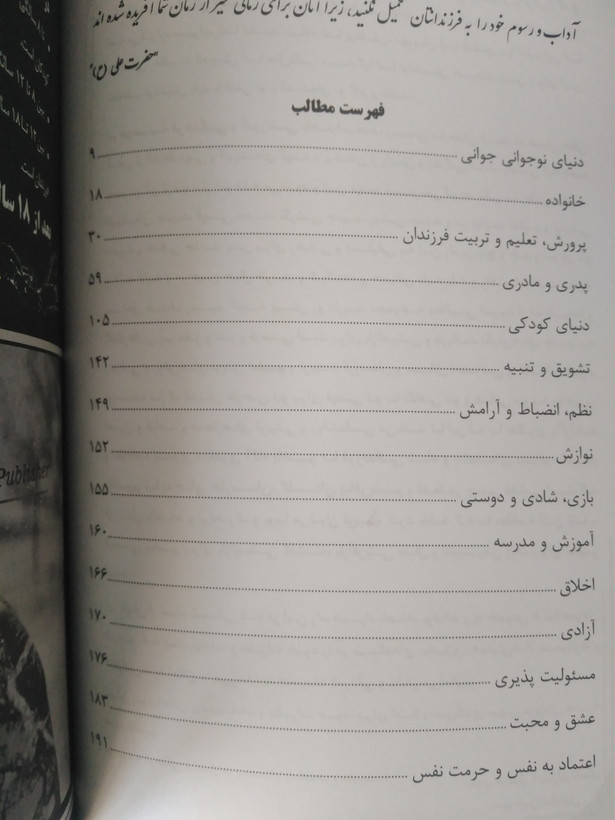 آداب و رسوم خود را به فرزندانتان تحمیل نکنید، زیرا آنان برای زمانی غیر از زمان شما آفریده شده اند
"حضرت علی (ع)"
فهرست مطالب
دنیای نوجوانی جوانی ۹
خانواده ۱۸
پرورش، تعلیم و تربیت فرزندان ۳۰
پدری و مادری ۵۹
دنیای کودکی ۱۰۵
تشویق و تنبیه ۱۴۲
نظم، انضباط و آرامش ۱۴۹
نوازش ۱۵۲
بازی، شادی و دوستی ۱۵۵
آموزش و مدرسه ۱۶۰
اخلاق ۱۶۶
آزادی ۱۷۰
مسئولیت پذیری ۱۷۶
عشق و محبت ۱۸۳
اعتماد به نفس و حرمت نفس ۱۹۱
بعد از ۱۸ سا
Publisher